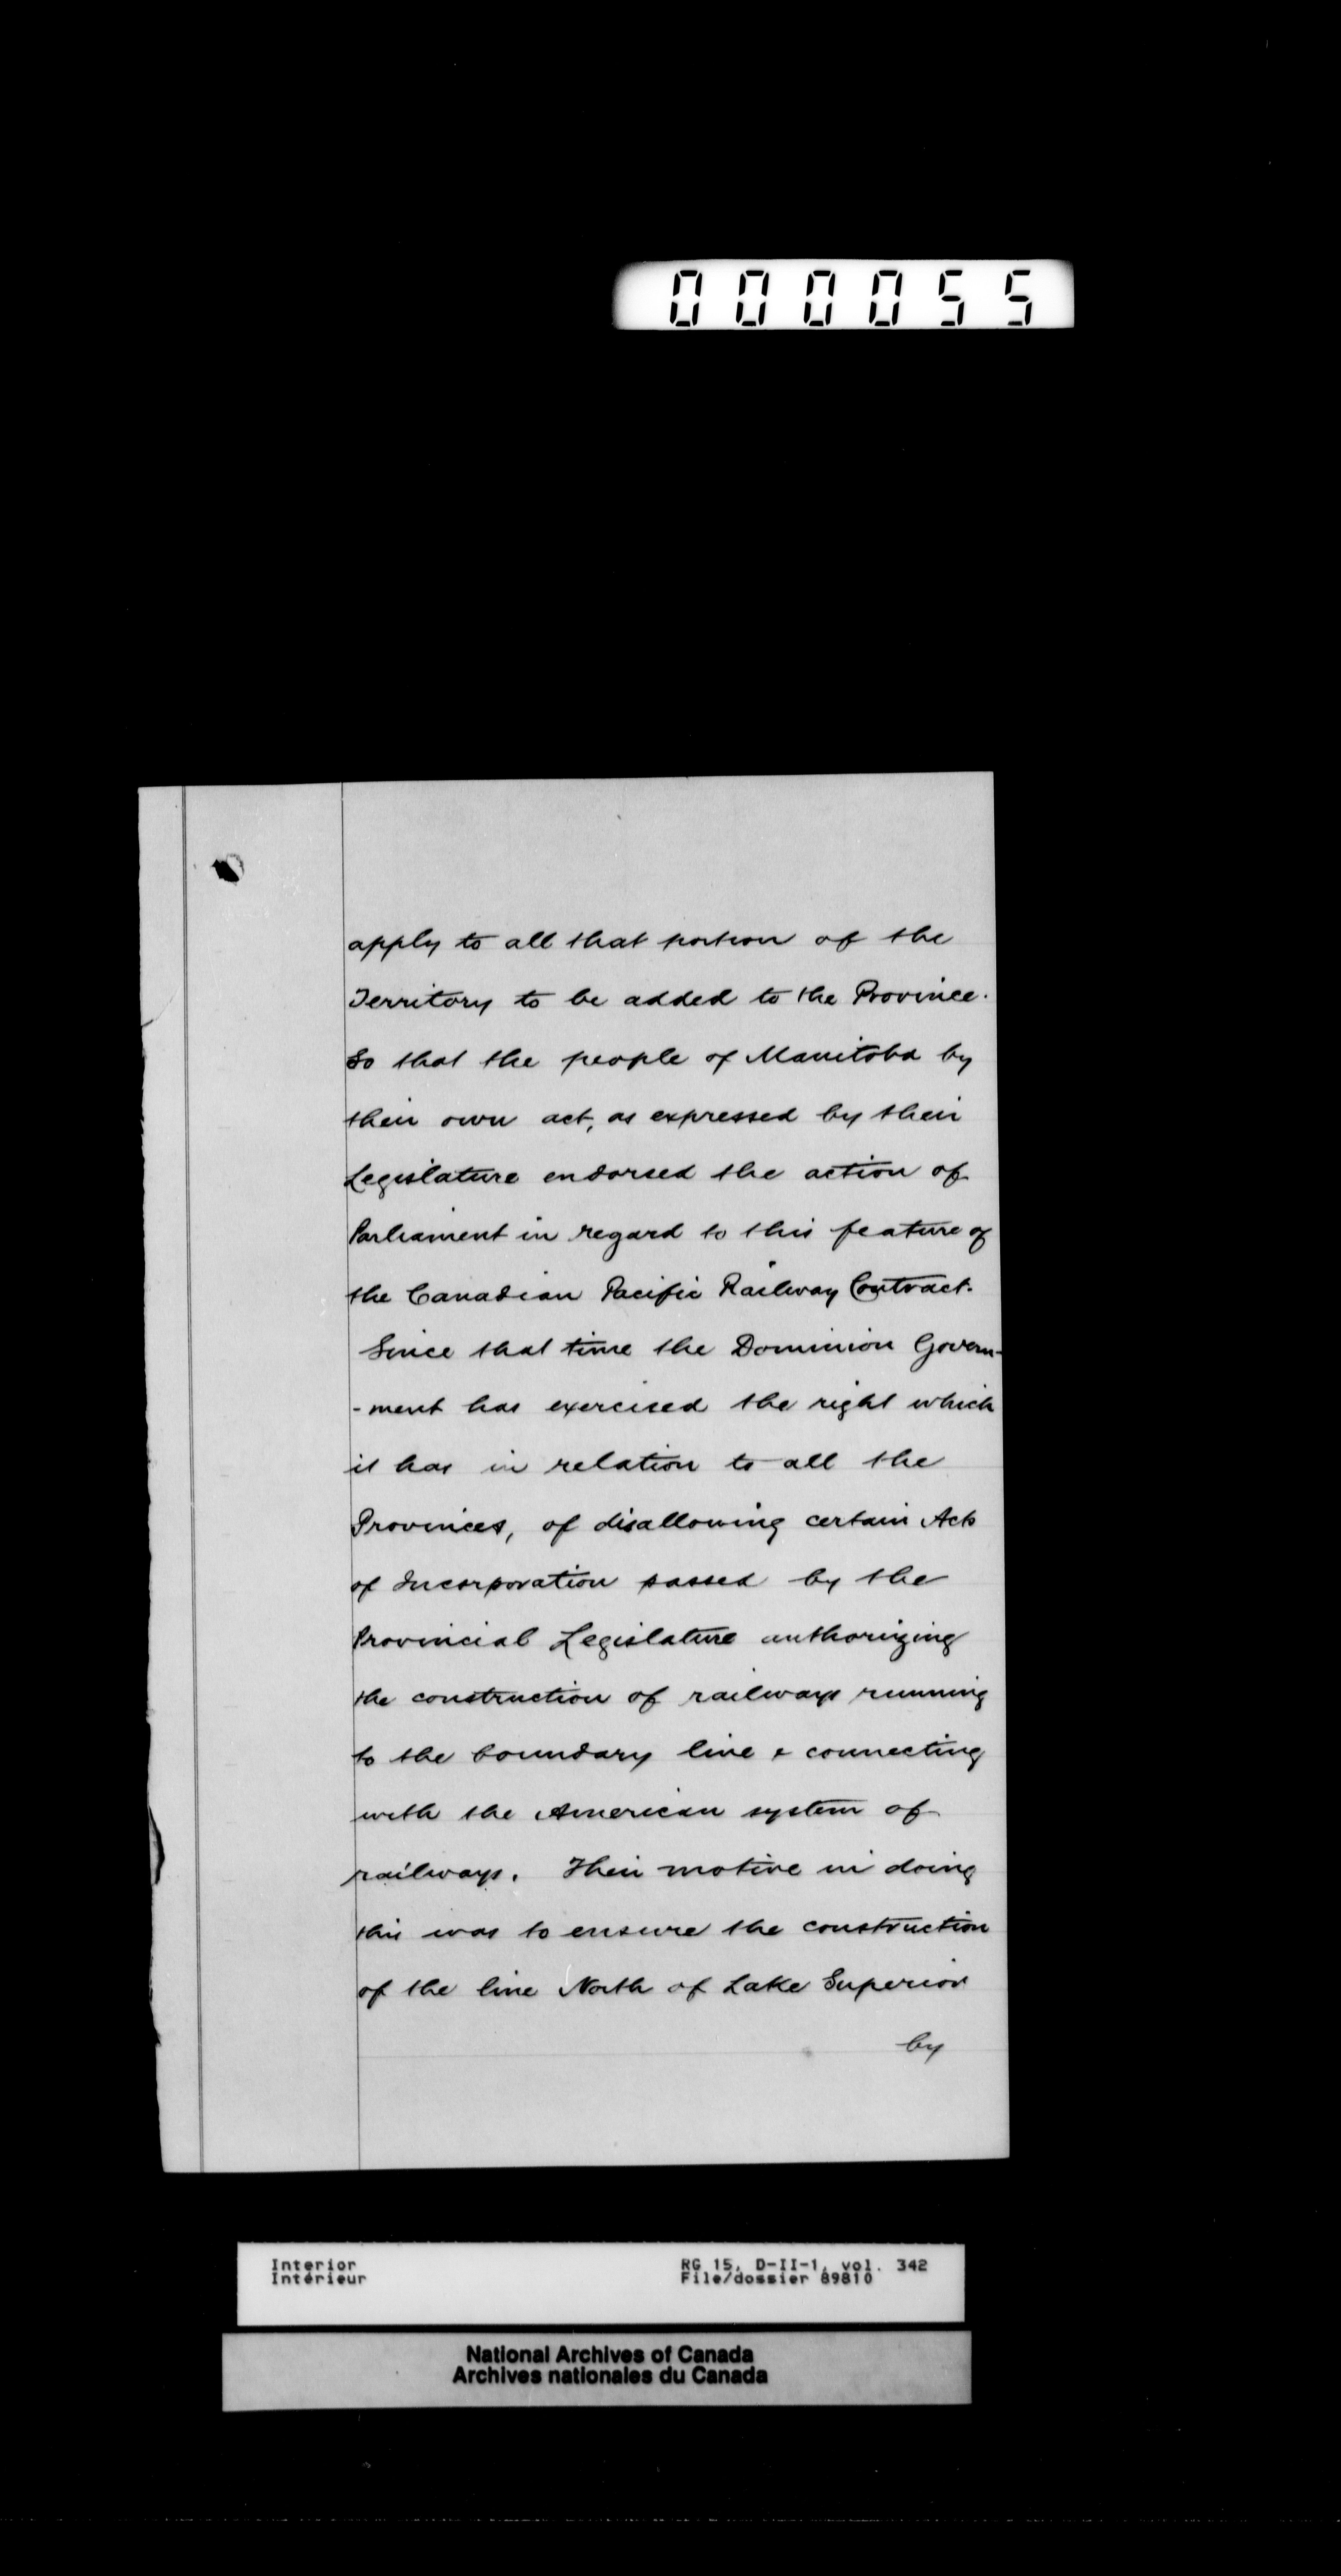 000055
apply to all that portion of the
Territory to be added to the Province.
So that the people of Manitoba by
their own act, as expressed by their
Legislature endorsed the action of
Parliament in regard to this feature of
the Canadian Pacific Railway Contract.
Since that time the Dominion Govern-
-ment has exercised the right which
it has in relation to all the
Provinces, of disallowing certain Acts
of Incorporation passed by the
Provincial Legislature authorizing
the construction of railways running
to the boundary line & connecting
with the American system of
railways. Their motive in doing
this was to ensure the construction
of the line North of Lake Superior
by
Interior RG 15, D-II-1, vol. 342
Intérieur File/dossier 89810
National Archives of Canada
Archives nationales du Canada